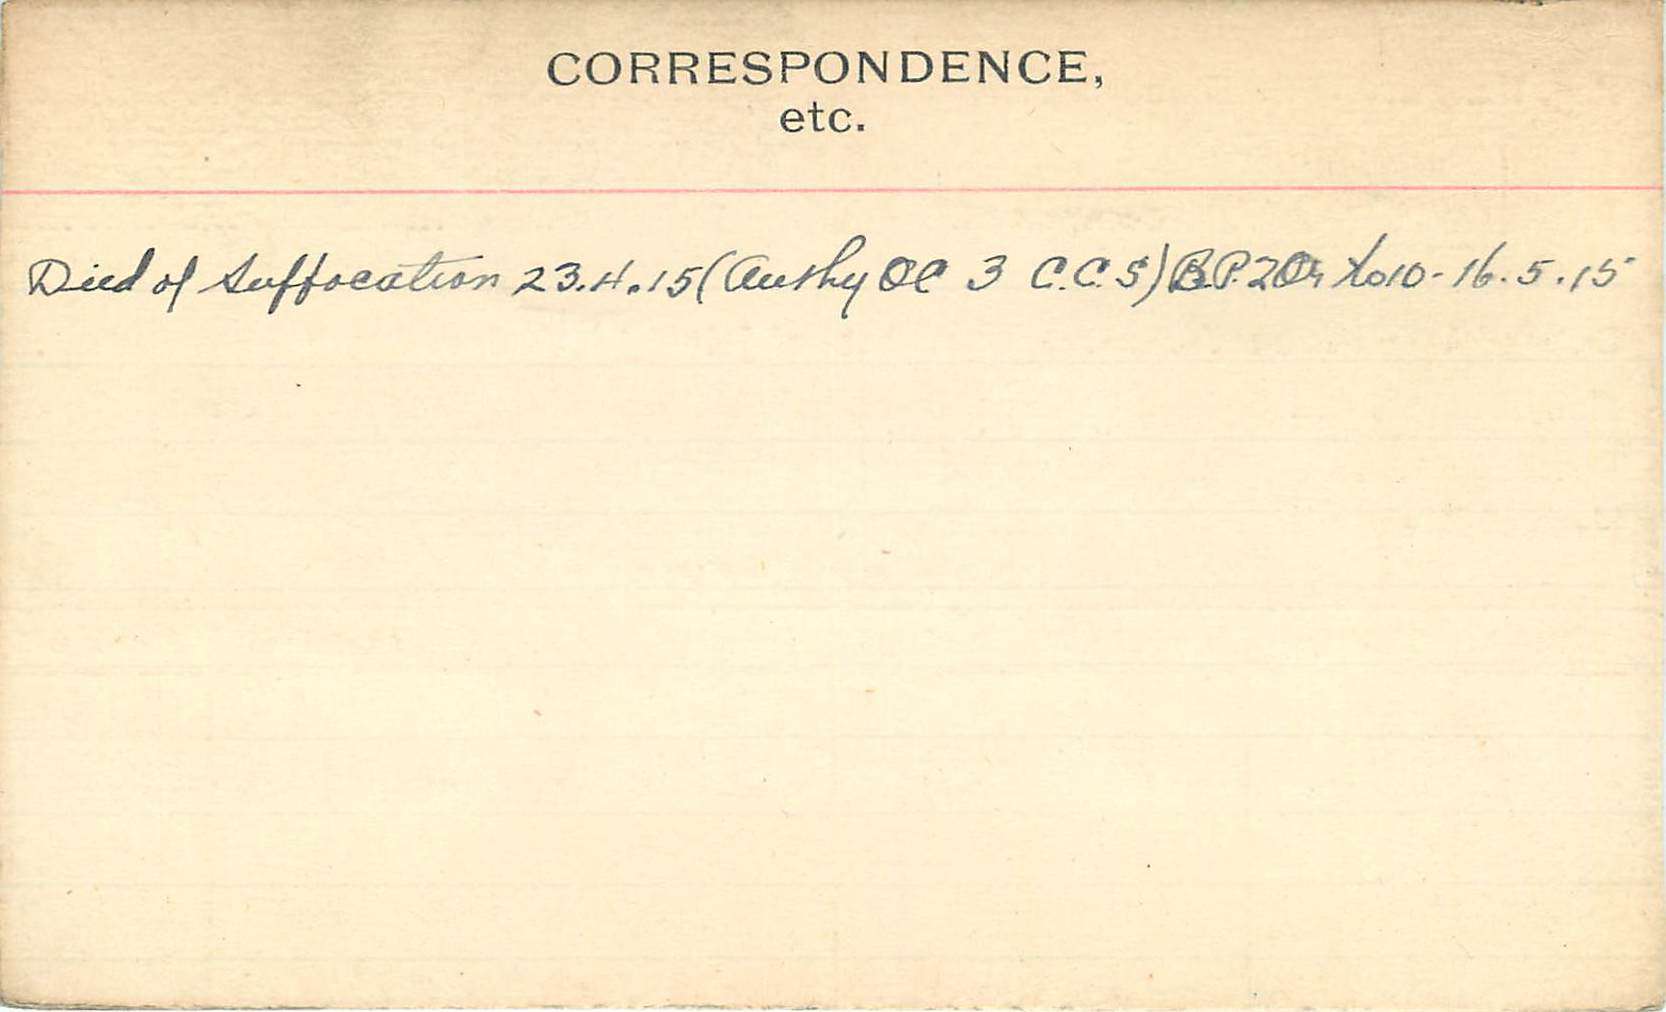 CORRESPONDENCE,
etc.
Died of Suffocation 23.4.15 (Authy OC 3 C.C.S) B.P.2Or 10-16.5.15